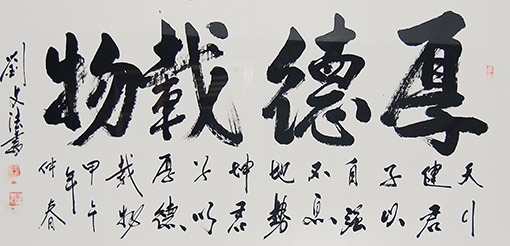 厚德載物
天行
健君
子以
自強
不息
地勢
坤君
子以
厚德
載物
甲午
年
仲春
劉文法書